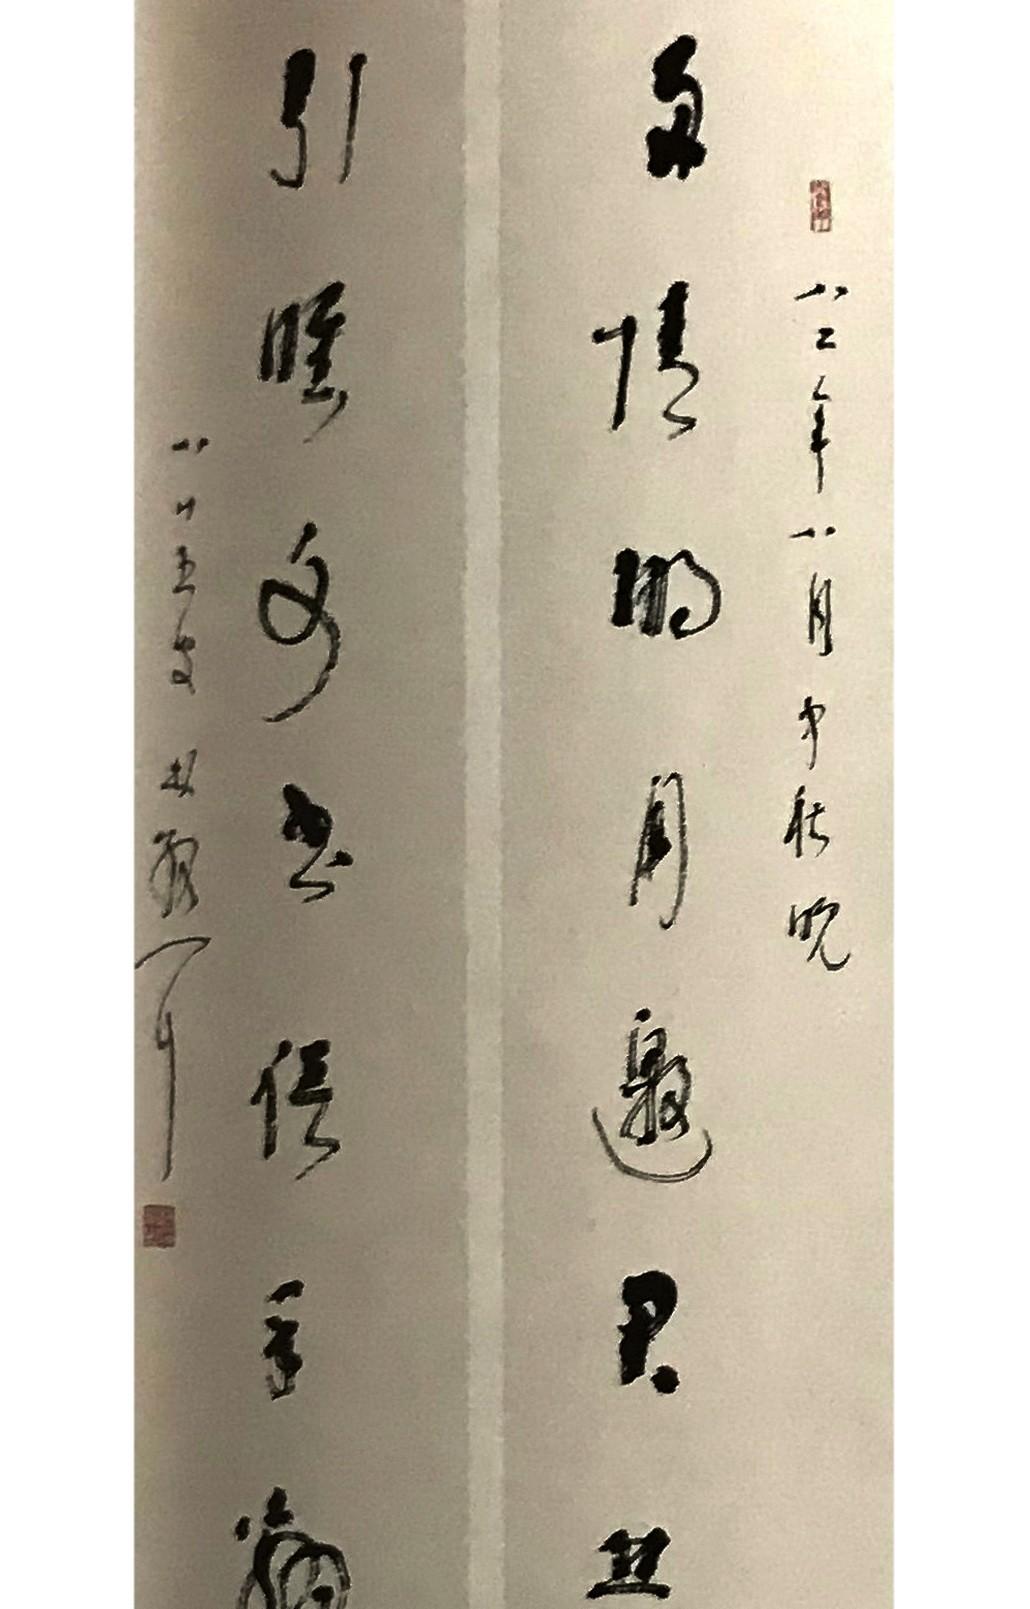 八二年八月中秋晚
多情明月邀君共
引睡文書信手翻
八十五叟林散耳